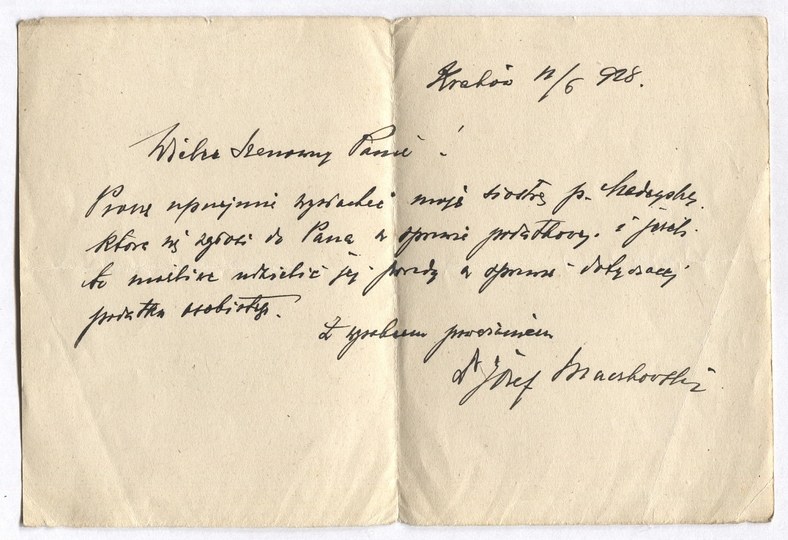 Kraków 12/6 928.
Wielce Szanowny Panie!
Proszę uprzejmie wysłuchać moją siostrę p.
która się zgłosi do Pana w sprawie podatkowej i jeżeli
to możliwe udzielić jej porady w sprawie dotyczącej
podatku osobistego.
Z wysokiem poważaniem
Dr Józef